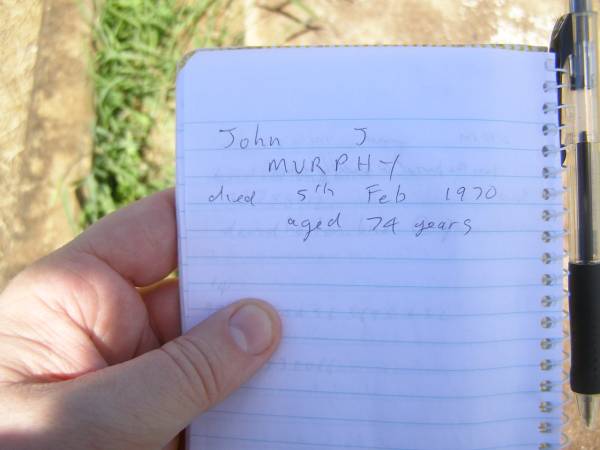 John J
MURPHY
died 5th Feb 1970
aged 74 years